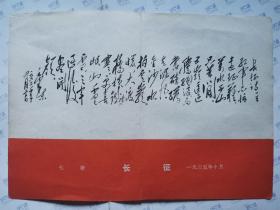 红军不怕
远征难
万水千山
只等闲
五岭逶迤
腾细浪
乌蒙磅礴
走泥丸
金沙水
拍云崖暖
大渡桥横
铁索寒
更喜岷山
千里雪
三军过后
尽开颜
毛泽东
七律 长征 一九三五年十月